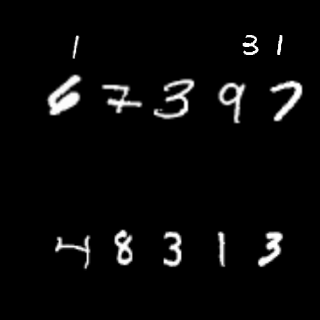 1 3 1
6 7 3 9 7
4 8 3 1 3